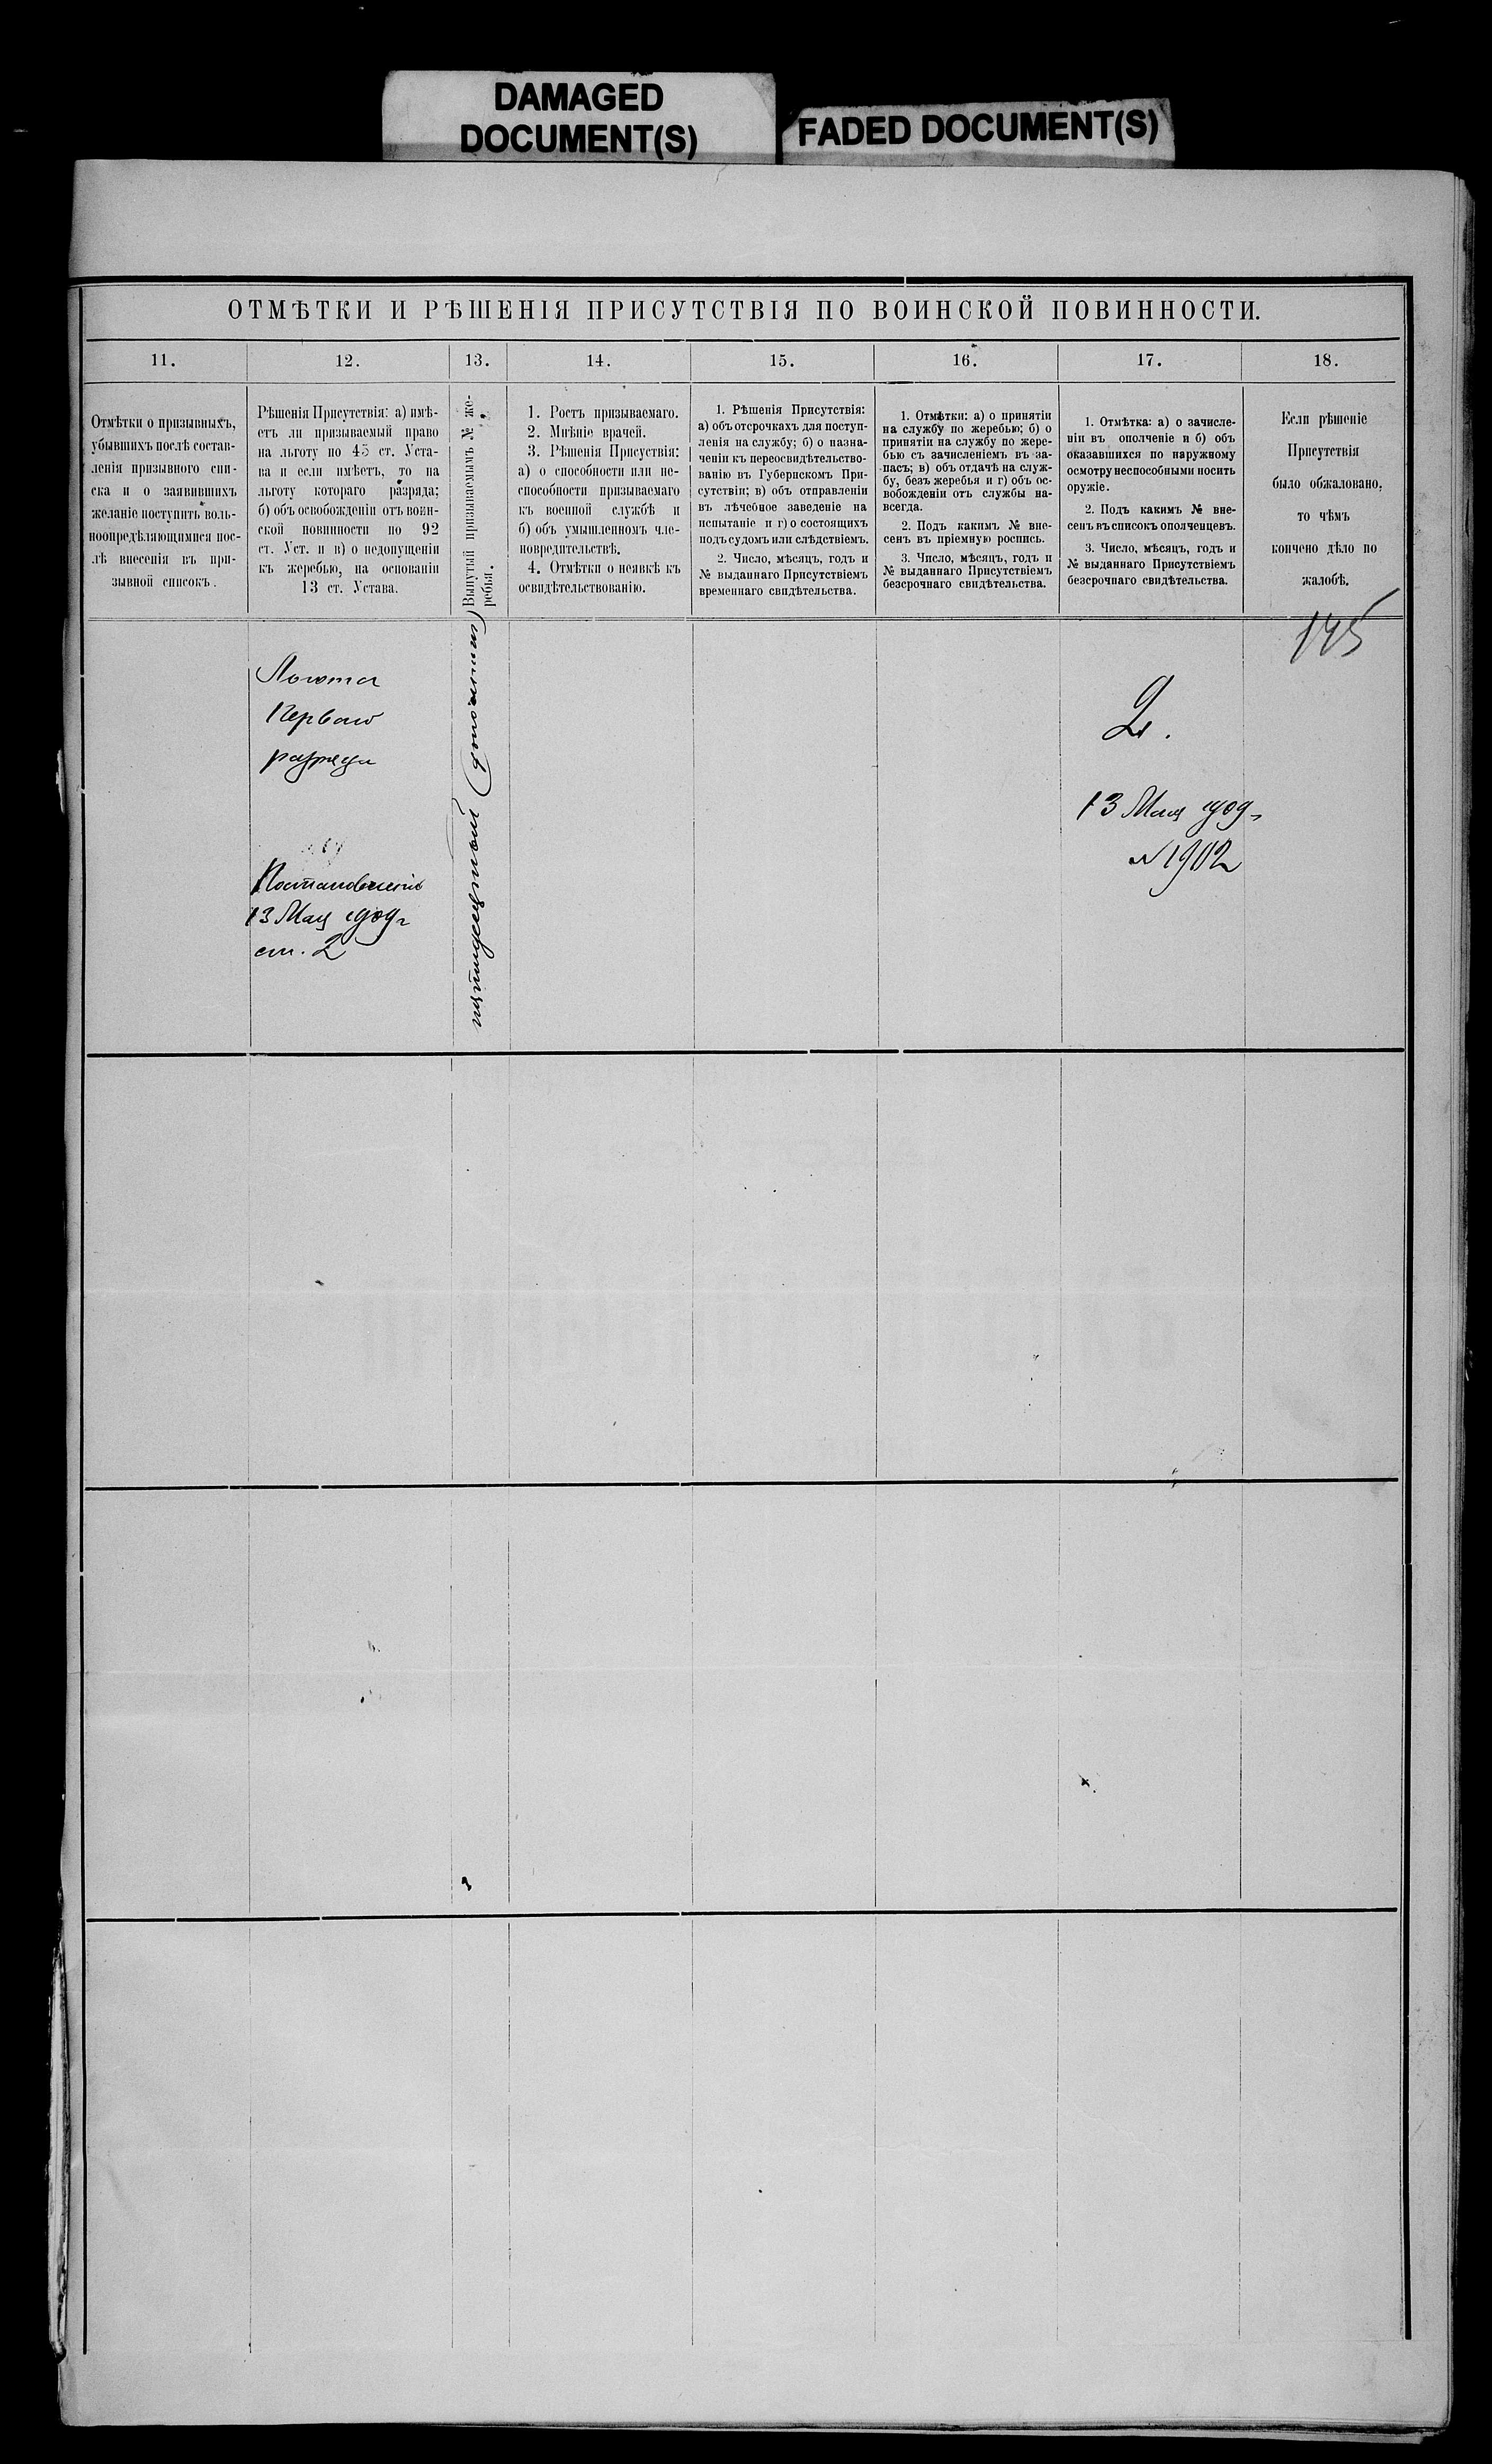 DAMAGED
DOCUMENT(S)
FADED DOCUMENT(S)
ОТМѢТКИ И РѢШЕНІЯ ПРИСУТСТВІЯ ПО ВОИНСКОЙ ПОВИННОСТИ.
11.
12.
13.
14.
15.
16.
17.
18.
Отмѣтки о призывныхъ,
убывшихъ послѣ состав-
ленія призывного спи-
ска и о заявившихъ
желаніе поступить воль-
ноопредѣляющимися пос-
лѣ внесенія въ при-
зывной списокъ.
Рѣшенія Присутствія: а) имѣ-
етъ ли призываемый право
на льготу по 45 ст. Уста-
ва и если имѣетъ, то на
льготу котораго разряда;
б) объ освобожденіи отъ воин-
ской повинности по 92
ст. Уст. и в) о недопущеніи
къ жеребью, на основаніи
13 ст. Устава.
Вынутый призываемымъ № же-
ребья.
1. Ростъ призываемаго.
2. Мнѣніе врачей.
3. Рѣшенія Присуствія:
а) о способности или не-
способности призываемаго
къ военной службѣ и
б) объ умышленномъ чле-
новредительствѣ.
4. Отмѣтки о неявкѣ къ
освидѣтельствованію.
1. Рѣшенія Присутствія:
а) объ отсрочкахъ для поступ-
ленія на службу; б) о назна-
ченіи къ переосвидѣтельство-
ванію въ Губернскомъ При-
сутствіи; в) объ отправленіи
въ лѣчебное заведеніе на
испытаніе и г) о состоящихъ
подъ судомъ или слѣдствіемъ.
2. Число, мѣсяцъ, годъ и
№ выданнаго Присутствіемъ
временнаго свидѣтельства.
1. Отмѣтки: а) о принятіи
на службу по жеребью; б) о
принятіи на службу по жере-
бью съ зачисленіемъ въ за-
пасъ; в) объ отдачѣ на служ-
бу, безъ жеребья и г) объ ос-
вобожденіи отъ службы на-
всегда.
2. Подъ какимъ № вне-
сенъ въ пріемную роспись.
3. Число, мѣсяцъ, годъ и
№ выданнаго Присутствіемъ
безсрочнаго свидѣтельства.
1. Отмѣтка: а) о зачисле-
ніи въ ополченіе и б) объ
оказавшихся по наружному
осмотру неспособными носить
оружіе.
2. Подъ какимъ № вне-
сенъ въ списокъ ополченцевъ.
3. Число, мѣсяцъ, годъ и
№ выданнаго Присутствіемъ
безсрочнаго свидѣтельства.
Если рѣшеніе
Присутствія
было обжаловано,
то чѣмъ
кончено дѣло по
жалобѣ.
145
Льгота
перваго
разряда
Постановленіе
13 Мая 1909 г
ст. 2
2.
13 Мая 1909 г
№ 1902